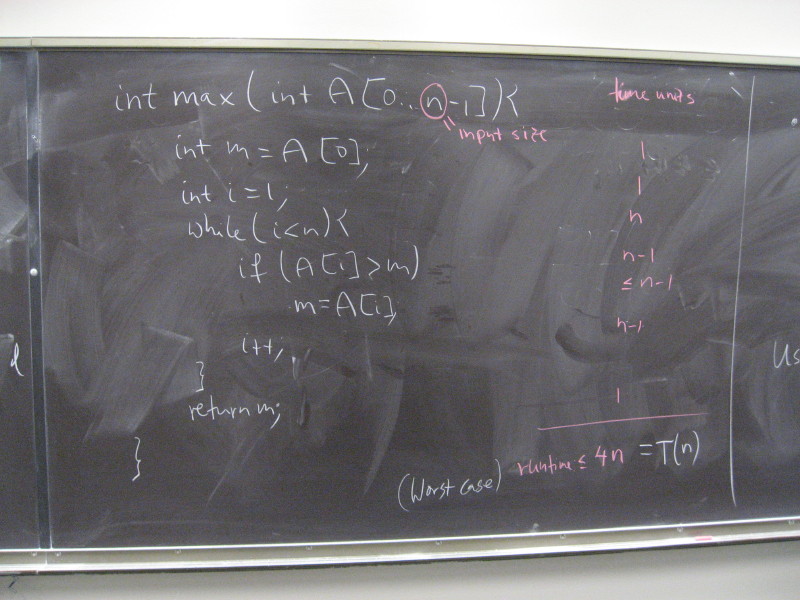 int max(int A[0..n-1]){ time units
input size
int m = A[0]; 1
int i=1; 1
while(i<n){ n
if (A[i]>m) n-1
m=A[i]; ≤ n-1
i++; n-1
}
return m; 1
}
(Worst case) runtime ≤ 4n = T(n)
Us